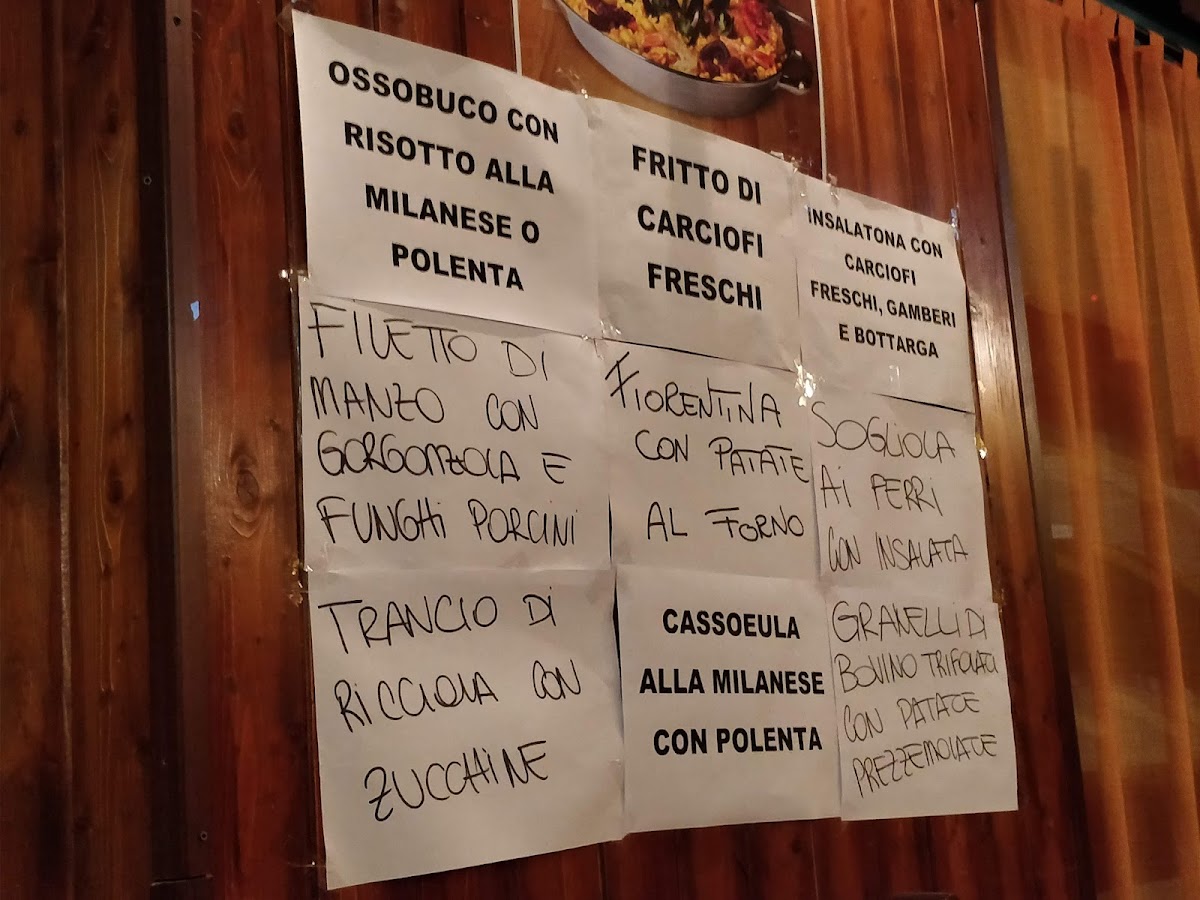 OSSOBUCO CON
RISOTTO ALLA
MILANESE O
POLENTA
FRITTO DI
CARCIOFI
FRESCHI
INSALATONA CON
CARCIOFI
FRESCHI, GAMBERI
E BOTTARGA
FILETTO DI
MANZO CON
GORGONZOLA E
FUNGHI PORCINI
FIORENTINA
CON PATATE
AL FORNO
SOGLIOLA
AI FERRI
CON INSALATA
TRANCIO DI
RICCIOLA CON
ZUCCHINE
CASSOEULA
ALLA MILANESE
CON POLENTA
GRANELLI DI
BOVINO TRIFOLATI
CON PATATE
PREZZEMOLATE